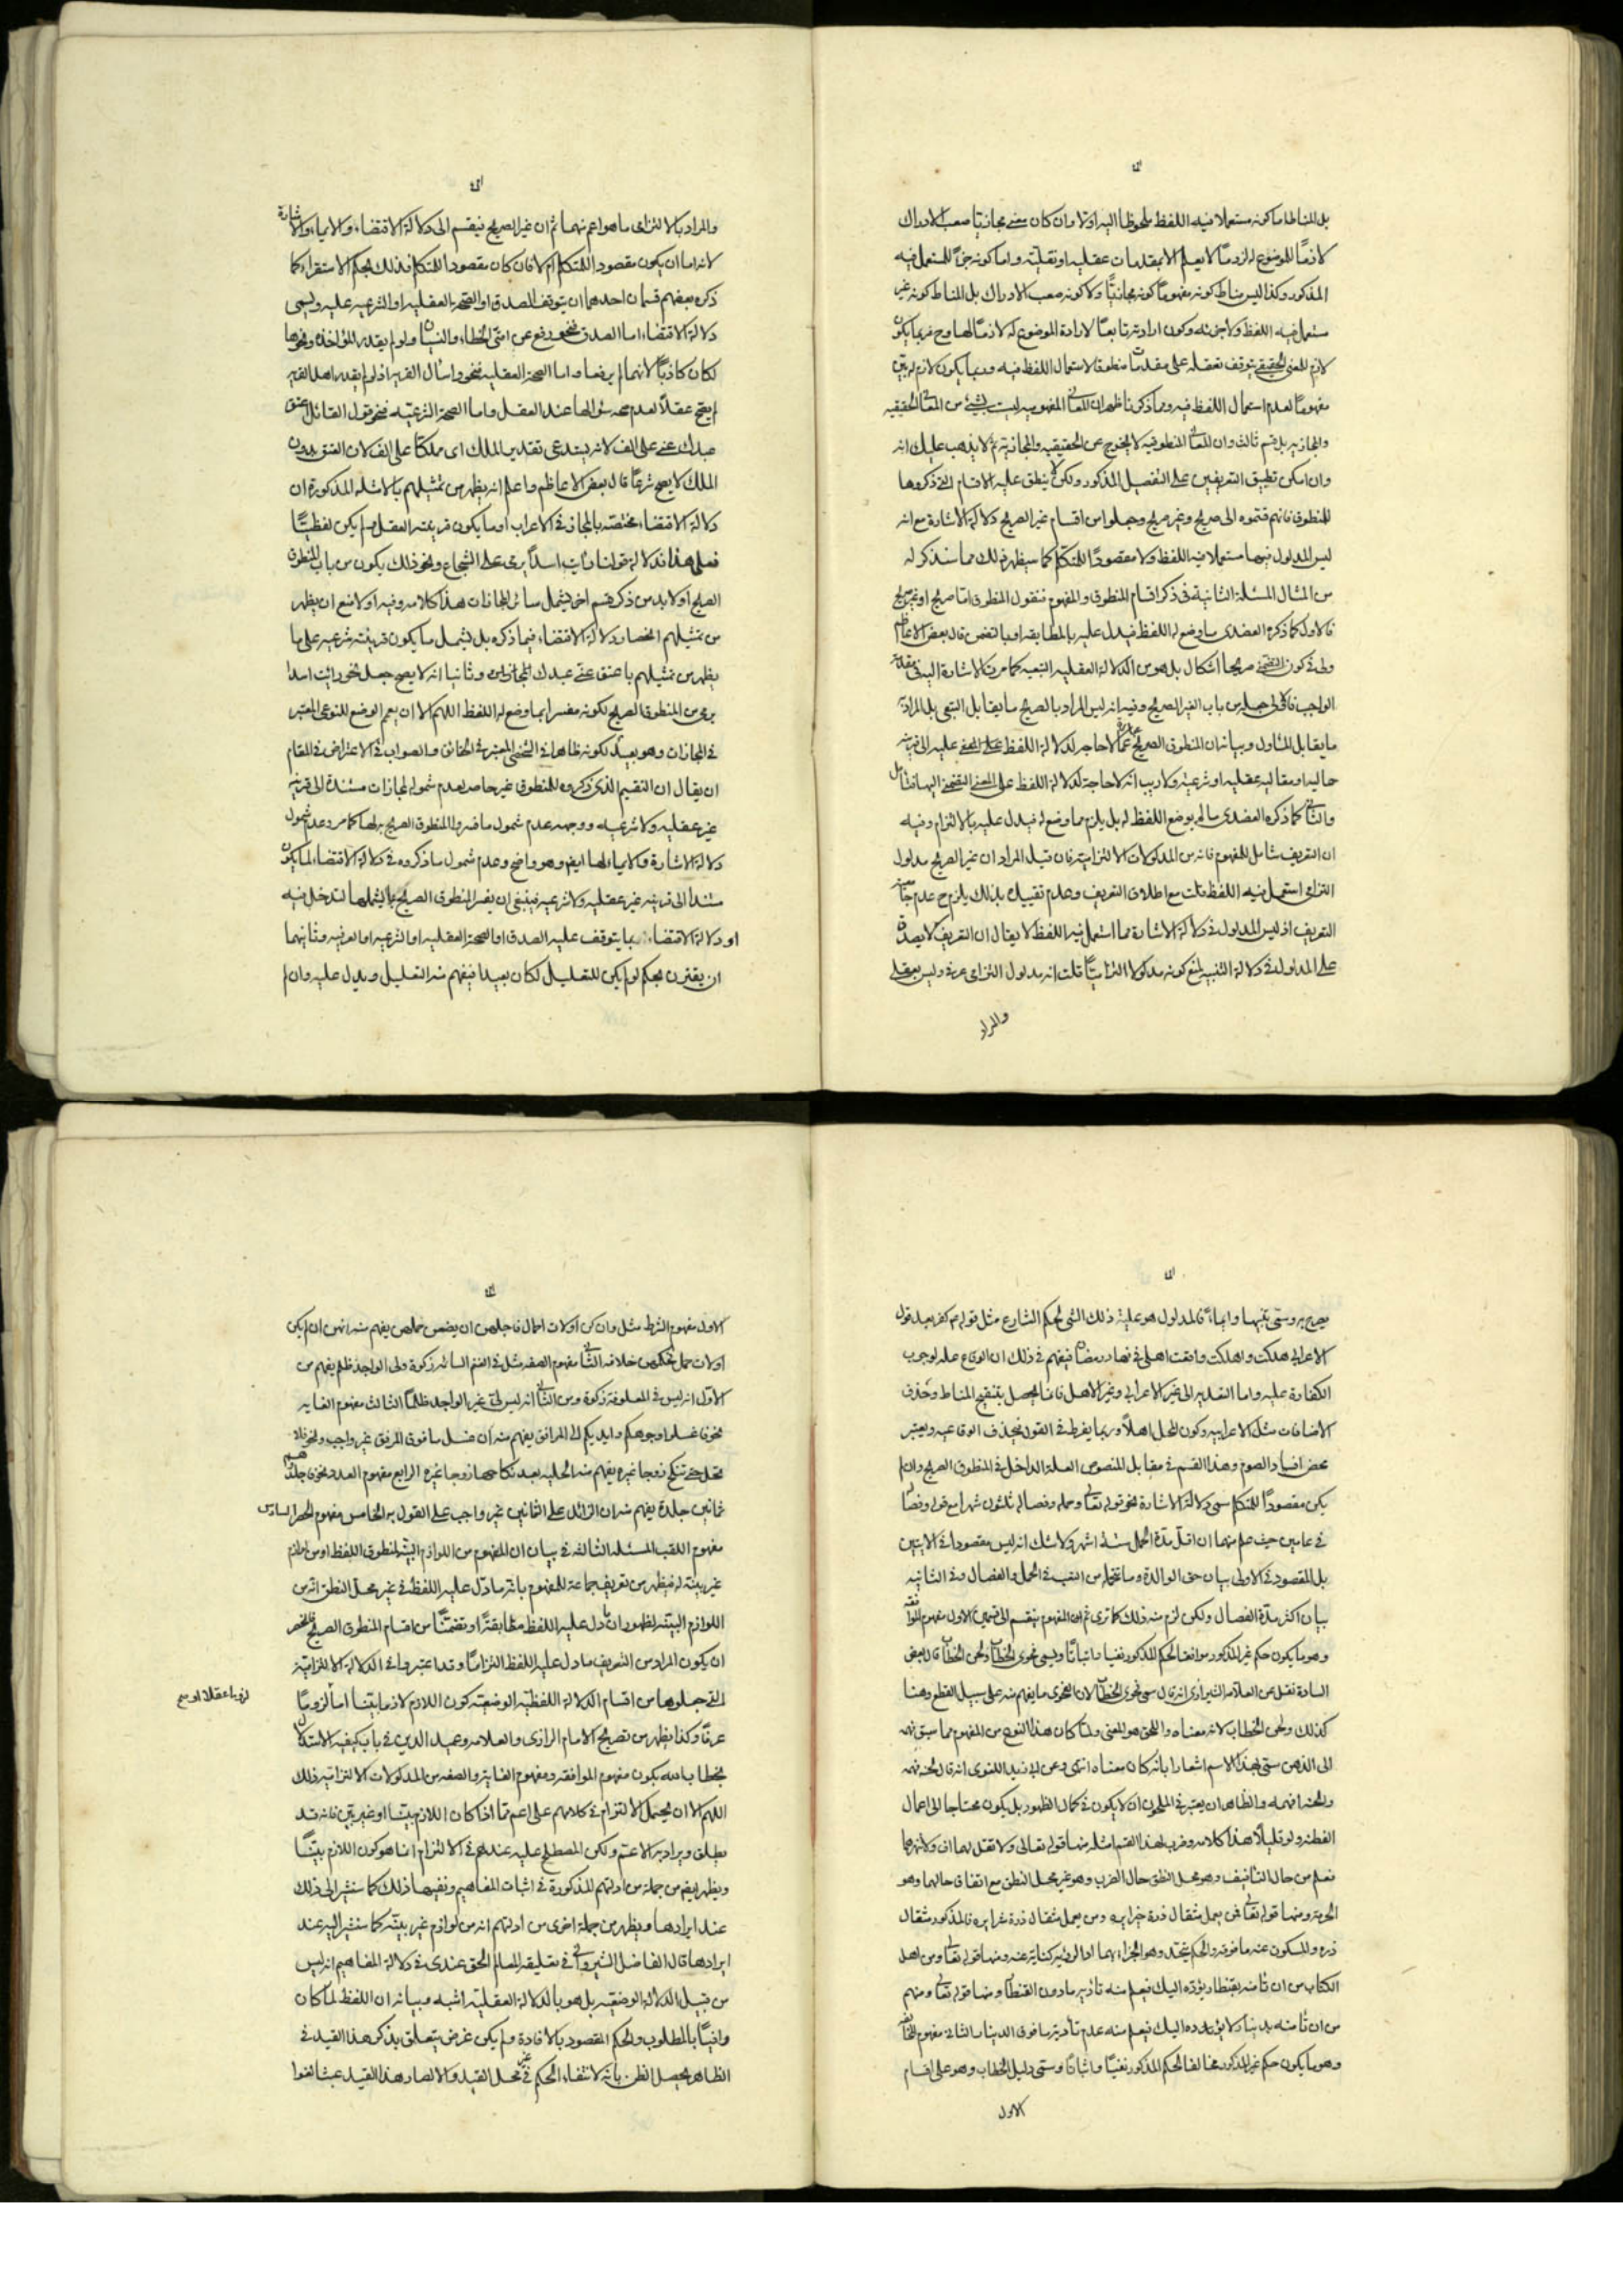 بل المناط اما كونه مستعملا فيه اللفظ ملحوظا اليه اولا وان كان معنى مجازيا صعب الادراك
لازمًا للموضوع له لزومًا لا يعلم الا بمقدمات عقلية او نقلية واما كونه جزءًا للمستعمل فيه
المذكور وكذا ليس مناط كونه مفهومًا كونه مجازيًّا ولا كونه صعب الادراك بل المناط كونه غير
مستعمل فيه اللفظ ولا جزء له وكون ارادته تابعًا لارادة الموضوع له لازمًا لها وح فربما يكون
لازم للمعنى الحقيقي يتوقف تعقله على مقدمات منطوقا لاستعمال اللفظ فيه وربما يكون لازم له بيّن
مفهومًا لعدم استعمال اللفظ فيه ومما ذكرنا ظهر ان المعانى المفهومية ليست بشئ من المعانى الحقيقيه
والمجازيه بل قسم ثالث وان المعانى المنطوقيه لا يخرج عن الحقيقيه والمجازية ثم لا يذهب عليك انه
وان امكن تطبيق التعريفين على التفصيل المذكور ولكن لا ينطبق عليه الاقسام التى ذكروها
للمنطوق فانهم قسموه الى صريح وغير صريح وجعلوا من اقسام غير الصريح دلالة الاشارة مع انه
ليس المدلول فيها مستعملا فيه اللفظ ولا مقصودًا للمتكلم كما سيظهر ذلك مما سنذكر له
من المثال المسئلة الثانية فى ذكر اقسام المنطوق والمفهوم فنقول المنطوق اما صريح او غير صريح
فالاول كما ذكره العضدى ما وضع له اللفظ فيدل عليه بالمطابقه او بالتضمن قال بعض الاعاظم
ولى فى كون التضمنى صريحا اشكال بل هو من الدلالة العقليه التبعيه كما مرت الاشارة اليه فى مقدمة
الواجب فالاولى جعله من باب الغير الصريح وفيه انه ليس المراد بالصريح ما يقابل التبعى بل المراد به
ما يقابل المأول وبيانه ان المنطوق الصريح عبارة عما لا حاجة لدلالة اللفظ على المعنى عليه الى قرينه
حاليه او مقاليه عقليه او شرعيه ولا ريب انه لا حاجة لدلالة اللفظ على المعنى التضمنى اليها فتامل
والثانى كما ذكره العضدى ما لم يوضع اللفظ له بل يلزم مما وضع له فيدل عليه بالالتزام وفيه
ان التعريف شامل للمفهوم فانه من المدلولات الالتزاميه فان قيل المراد ان غير الصريح مدلول
التزامى استعمل فيه اللفظ قلت مع اطلاق التعريف وعدم تقييده بذلك يلزم ح عدم جامعية
التعريف اذ ليس المدلول فى دلالة الاشارة مما استعمل فيه اللفظ لا يقال ان التعريف لا يصدق
على المدلول فى دلالة التنبيه لمنع كونه مدلولا التزاميًّا قلت انه مدلول التزامى عرفى وليس بعقلى
والمراد
والمراد بالالتزامى ما هو اعم منهما ثم ان غير الصريح ينقسم الى دلالة الاقتضاء والايماء والاشارة
لانه اما ان يكون مقصودا للمتكلم ام لا فان كان مقصودا للمتكلم فذلك بحكم الاستقراء كما
ذكره بعضهم قسمان احدهما ان يتوقف الصدق او الصحة العقليه او الشرعيه عليه ويسمى
دلالة الاقتضاء اما الصدق فنحو رفع عن امتى الخطاء والنسيان ولو لم يقدر المؤاخذه ونحوها
لكان كاذبًا لانهما لم يرفعا واما الصحة العقليه فنحو واسأل القريه اذ لو لم يقدر اهل القريه
لم يصح عقلًا لعدم صحة سئوالها عند العقل واما الصحة الشرعيّه فنحو قول القائل اعتق
عبدك عنى على الف لانه يستدعى تقدير الملك اى مملكا على الف لان العتق بدون
الملك لا يصح شرعًا قال بعض الاعاظم واعلم انه يظهر من تمثيلهم بالامثله المذكورة ان
دلالة الاقتضاء مختصّه بالمجاز فى الاعراب او ما يكون قرينته العقل ولم يكن لفظيًّا
فعلى هذا فدلالة قولنا رأيت اسدًا يرمى على الشجاع ونحو ذلك يكون من باب المنطوق
الصريح او لا بد من ذكر قسم اخر ليشمل سائر المجازات هذا كلامه وفيه اولا منع ان يظهر
من تمثيلهم انحصار دلالة الاقتضاء فيما ذكره بل يشمل ما يكون قرينته شرعيه على ما
يظهر من تمثيلهم باعتق عنّى عبدك وثانيا انه لا يصح جعل نحو رايت اسدا
يرمى من المنطوق الصريح لكونه مفسرا بما وضع له اللفظ اللهم الا ان يعم الوضع للنوعى المعتبر
فى المجازات وهو بعيد لكونه ظاهرا فى الشخصى المعتبر فى الحقائق والصواب فى الاعتراض فى المقام
ان يقال ان التقسيم الذى ذكروه للمنطوق غير حاصر لعدم شموله لمجازات مستندة الى قرينه
غير عقليه ولا شرعيه ووجهه عدم شمول ما فسروا المنطوق الصريح به لها كما مر وعدم شمول
دلالة الاشارة والايماء لها ايضا وهو واضح وعدم شمول ما ذكروه فى دلالة الاقتضاء لما يكون
مستندا الى قرينه غير عقليه ولا شرعيه فينبغى ان يفسر المنطوق الصريح بما يشملها لتدخل فيه
او دلالة الاقتضاء بما يتوقف عليه الصدق او الصحة العقليه او الشرعيه او العرفيه وثانيهما
ان يقترن بحكم لو لم يكن للتعليل لكان بعيدا فيفهم منه التعليل ويدل عليه وان لم
يصرح به ويسمى تنبيها وايماءً فالمدلول هو علية ذلك الشئ لحكم الشارع مثل قوله كفر بعد قول
الاعرابى هلكت واهلكت واقعت اهلى فى نهار رمضان فيفهم فى ذلك ان الوقاع علة لوجوب
الكفارة عليه واما التعديه الى غير الاعرابى وغير الاهل فانما يحصل بتنقيح المناط وحذف
الاضافات مثل الاعرابيه وكون المحل اهلًا وربما يفرط فى القول فيحذف الوقاع عنه ويعتبر
محض افساد الصوم وهذا القسم فى مقابل المنصوص العلة الداخل فى المنطوق الصريح وان لم
يكن مقصودًا للمتكلم سمى دلالة الاشارة نحو قوله تعالى وحمله وفصاله ثلثون شهرا مع قوله وفصاله
فى عامين حيث علم منهما ان اقل مدة الحمل ستة اشهر ولا شك انه ليس مقصودا فى الايتين
بل المقصود فى الاولى بيان حق الوالدة وما تحمله من التعب فى الحمل والفصال وفى الثانيه
بيان اكثر مدة الفصال ولكن لزم منه ذلك كما ترى ثم ان المفهوم ينقسم الى قسمين الاول مفهوم الموافقة
وهو ما يكون حكم غير المذكور موافقا لحكم المذكور نفيا واثباتًا ويسمى فحوى الخطاب ولحن الخطاب قال بعض
السادة نقل عن العلامة الشيرازى انه قال سمى فحوى الخطاب لان الفحوى ما يفهم منه على سبيل القطع وهنا
كذلك ولحن الخطاب لانه معناه واللحن هو المعنى ولما كان هذا النوع من المفهوم مما سبق فهمه
الى الذهن سمّى بهذا الاسم اشعارا بانه كان معناه انتهى وعن ابى زيد اللغوى انه قال لحنه فهمه
والحنه افهمه والظاهر ان يعتبر فى الملحون ان لا يكون فى كمال الظهور بل يكون محتاجا الى اعمال
الفطنه ولو قليلًا هذا كلامه وضرب لهذا القسم امثله منها قوله تعالى ولا تقل لهما اف ولا تنهرهما
فعلم من حال التافيف وهو محل النطق حال الضرب وهو غير محل النطق مع اتفاق حالهما وهو
الحرمة ومنها قوله تعالى فمن يعمل مثقال ذرة خيرا يره ومن يعمل مثقال ذرة شرا يره فالمذكور مثقال
ذره والمسكون عنه ما فوقه والحكم متحد وهو الجزاء بهما اذ الرويه كناية عنه ومنها قوله تعالى ومن اهل
الكتاب من ان تأمنه بقنطار يؤدّه اليك فيعلم منه تأديه ما دون القنطار ومنها قوله تعالى ومنهم
من ان تأمنه بدينار لا يؤده اليك فيعلم منه عدم تأدية ما فوق الدينار الثانى مفهوم المخالفة
وهو ما يكون حكم غير المذكور مخالفا لحكم المذكور نفيًا واثباتًا وسمّى دليل الخطاب وهو على اقسام
الاول
الاول مفهوم الشرط مثل وان كن اولات احمال فاجلهن ان يضعن حملهن يفهم منه انهن ان لم يكن
اولات حمل فحكمهن خلافه الثانى مفهوم الصفه مثل فى الغنم السائمه زكوة ولى الواجد ظلم يفهم من
الاول انه ليس فى المعلوفة زكوة ومن الثانى انه ليس لى غير الواجد ظلمًا الثالث مفهوم الغايه
نحو فاغسلوا وجوهكم وايديكم الى المرافق يفهم منه ان غسل ما فوق المرفق غير واجب ونحو فلا
تحل حتى تنكح زوجا غيره يفهم منه الحليه بعد نكاحها زوجا غيره الرابع مفهوم العدد نحو فاجلدوهم
ثمانين جلدة يفهم منه ان الزائد على الثمانين غير واجب على القول به الخامس مفهوم الحصر السادس
مفهوم اللقب المسئلة الثالثه فى بيان ان المفهوم من اللوازم البيّنه لمنطوق اللفظ او من لوازم
غير بينة له فيظهر من تعريف جماعة للمفهوم بانه ما دلّ عليه اللفظ فى غير محل النطق انه من
اللوازم البينه لظهور ان ما دل عليه اللفظ مطابقةً او تضمنًا من اقسام المنطوق الصريح فانحصر
ان يكون المراد من التعريف ما دل عليه اللفظ التزامًا وقد اعتبروا فى الدلالة الالتزامية
التى جعلوها من اقسام الدلالة اللفظية الوضعيّه كون اللازم لازما بيّنا اما لزومًا
لزوما عقلا او مع
عرفًا وكذا يظهر من تصريح الامام الرازى والعلامه وعميد الدين فى باب كيفيه الاستدلال
بخطاب الله بكون مفهوم الموافقه ومفهوم الغاية والصفه من المدلولات الالتزاميه ذلك
اللهم الا ان يحمل الالتزام فى كلامهم على اعم مما اذا كان اللازم بيّنا او غير بيّن فانه قد
يطلق ويراد به الاعم ولكن المصطلح عليه عندهم فى الالتزام انما هو كون اللازم بيّنًا
ويظهر ايضا من جملة من ادلتهم المذكورة فى اثبات المفاهيم ونفيها ذلك كما سنشير الى ذلك
عند ايرادها ويظهر من جملة اخرى من ادلتهم انه من لوازم غير بينّه كما سنشير اليه عند
ايرادها قال الفاضل الشيروانى فى تعليقه المعالم الحق عندى فى دلالة المفاهيم انه ليس
من قبيل الدلالة الوضعيّه بل هو بالدلالة العقليّه اشبه وبيانه ان اللفظ لما كان
وافيًا بالمطلوب والحكم المقصود بالافادة ولم يكن غرض يتعلق بذكر هذا القيد فى
الظاهر يحصل الظن بانه لانتفاء الحكم فى غير محل القيد والا لصار هذا القيد عبثا لغوا